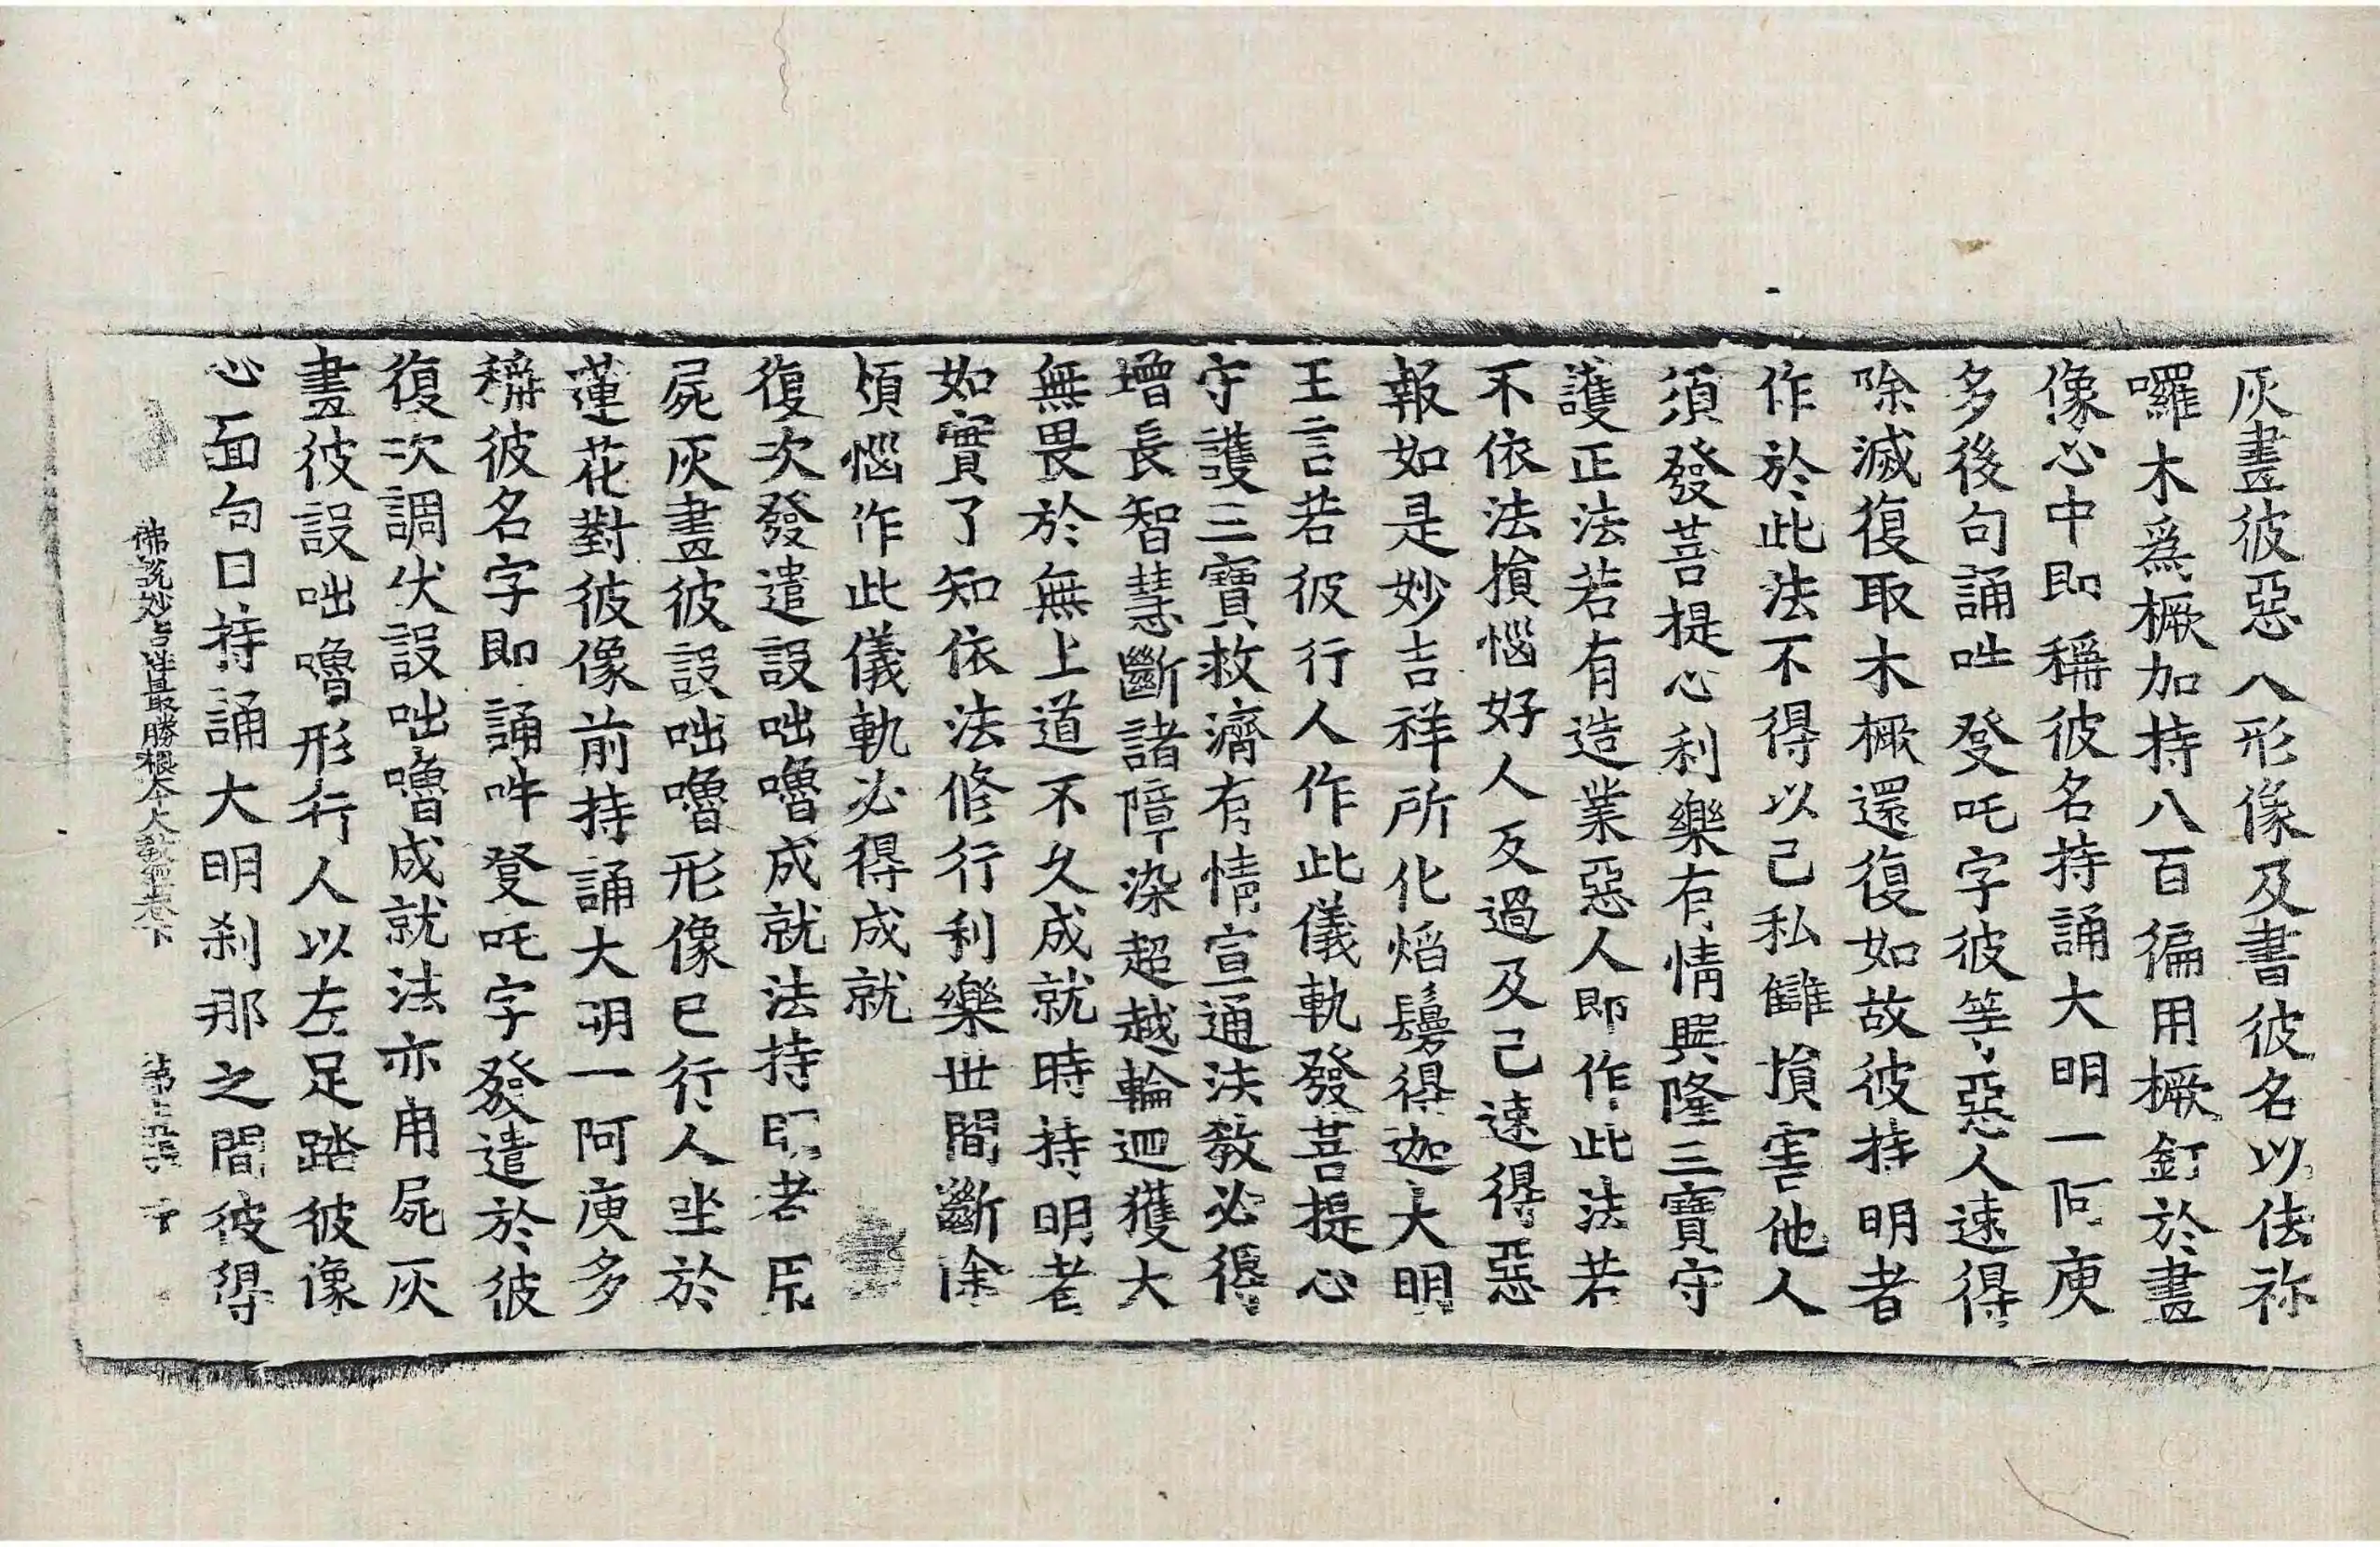 灰畫彼惡人形像及書彼名以佉祢
囉木爲橛加持八百徧用橛釘於畫
像心中即稱彼名持誦大明一阿庾
多後句誦吽癹吒字彼等惡人速得
除滅復取木橛還復如故彼持明者
作於此法不得以己私讎損害他人
須發菩提心利樂有情興隆三寶守
護正法若有造業惡人即作此法若
不依法損惱好人反過及己速得惡
報如是妙吉祥所化焰鬘得迦大明
王言若彼行人作此儀軌發菩提心
守護三寶救濟有情宣通法教必得
增長智慧斷諸障染超越輪迴獲大
無畏於無上道不久成就時持明者
如實了知依法修行利樂世間斷除
煩惱作此儀軌必得成就
復次發遣設咄嚕成就法持明者用
屍灰畫彼設咄嚕形像已行人坐於
蓮花對彼像前持誦大明一阿庾多
稱彼名字即誦吽癹吒字發遣於彼
復次調伏設咄嚕成就法亦用屍灰
畫彼設咄嚕形行人以左足踏彼像
心面句口持誦大明刹那之間彼得
佛說妙吉祥最勝根本大教經卷下 第 張